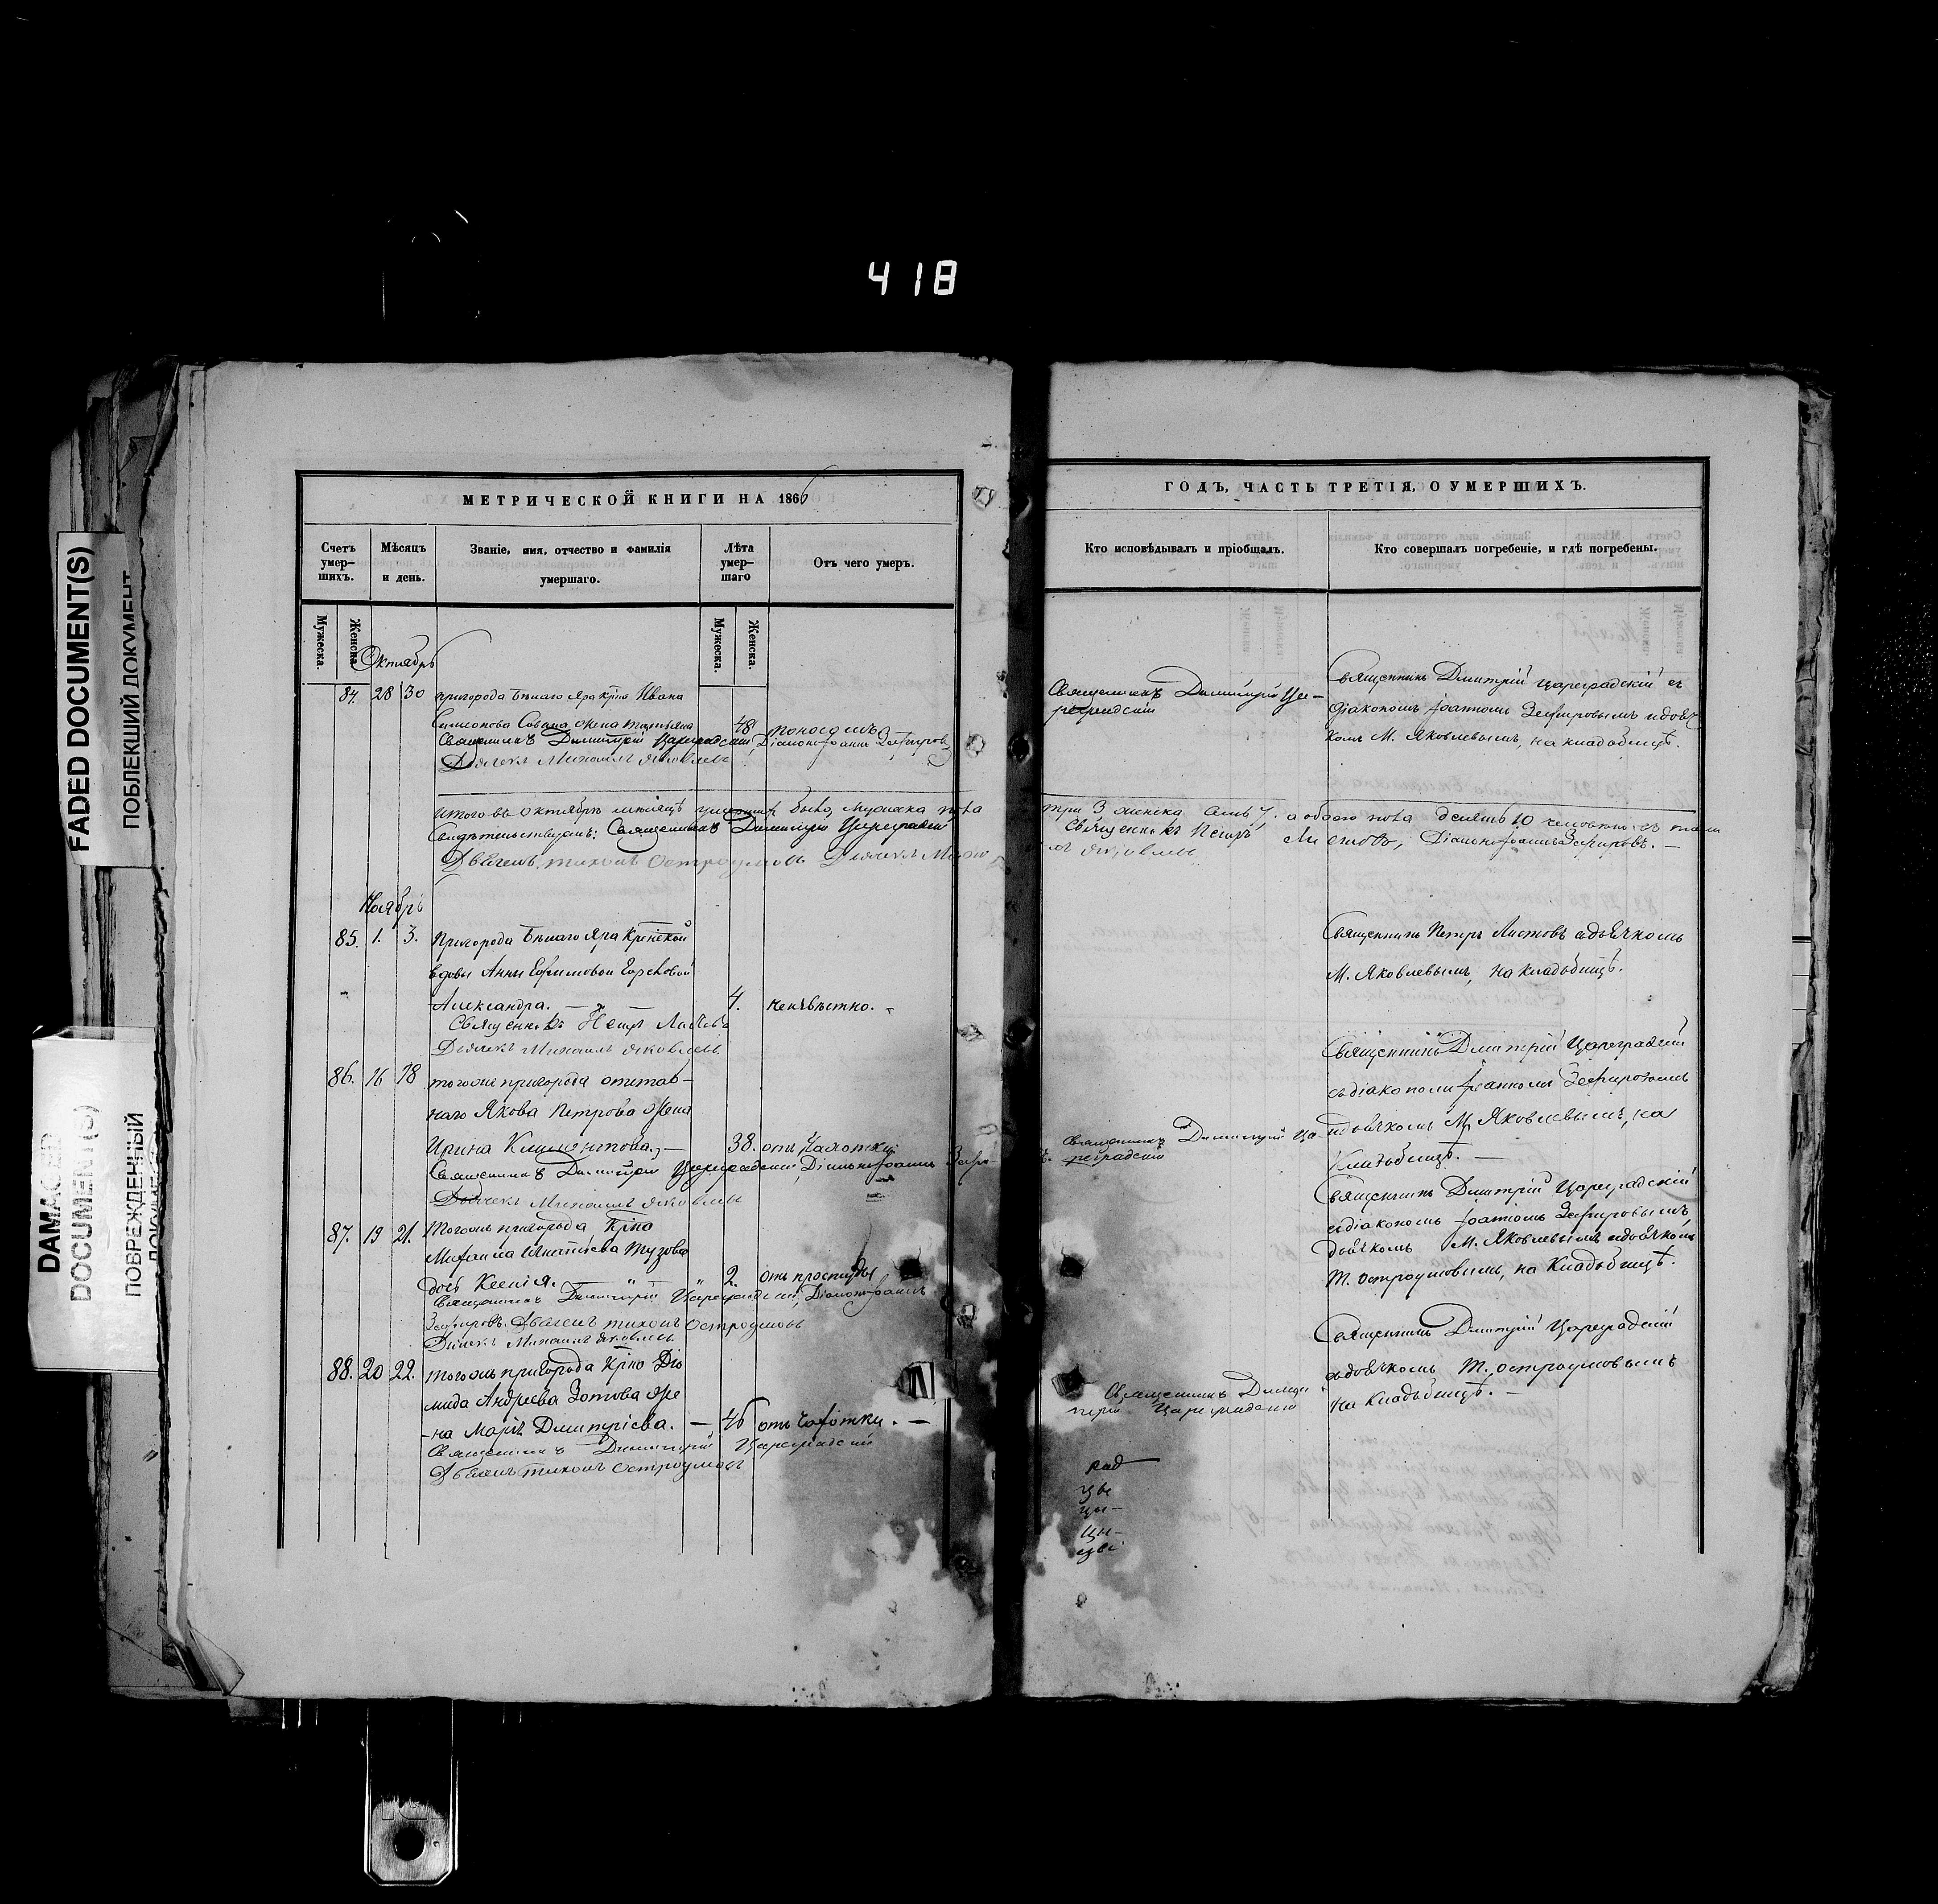 418
FADED DOCUMENT(S)
ПОБЛЕКШИЙ ДОКУМЕНТ
DAMAGED
DOCUMENT(S)
ПОВРЕЖДЕННЫЙ
ДОКУМЕНТ
МЕТРИЧЕСКОЙ КНИГИ НА 1866
Счетъ умер-шихъ.
Мѣсяцъ и день.
Званіе, имя, отчество и фамилія умершаго.
Лѣта умер-шаго
Отъ чего умеръ.
Мужеска.
Женска.
Мужеска.
Женска.
Октябрь
84. 28 30 пригорода Бѣлаго Яра Крно Ивана
Симонова жена Татьяна 48
Священникъ Димитрій Цареградскій, Діаконъ Іоаннъ Зефировъ
Дьячекъ Михаилъ Яковлевъ
Итого въ Октябрѣ мѣсяцѣ умершихъ было, мужска пола
Свидѣтельствуемъ: Священникъ Димитрій Цареградскій
Дьячекъ Тихонъ Остроумовъ Дьячекъ Михаи
Ноябрь
85. 1. 3. Пригорода Бѣлаго Яра Крѣнской
вдовы Анны Ефимовой
Александра. — 4. неизвѣстно. -
Священникъ Петръ Листовъ
Дьячекъ Михаилъ Яковлевъ
86. 16 18 тогоже пригорода отстав-
наго Якова Петрова жена
Ирина Климентова. — 38. отъ чахотки
Священникъ Димитрій Цареградскій, Діаконъ Іоаннъ Зефи-
Дьячекъ Михаилъ Яковлевъ
87. 19 21. Тогожъ пригорода Крно
Михаила Игнатіева Тузова
дочь Ксенія. 2. отъ простуды
Священникъ Димитрій Цареградскій, Діаконъ Іоаннъ
Зефировъ. Дьячекъ Тихонъ Остроумовъ
Дьячекъ Михаилъ Яковлевъ
88. 20 22. тогожъ пригорода Крно Діо
мида Андреева Зотова же
-на Марія Дмитріева. — 46 отъ чахотки. —
Священникъ Димитрій Цареградскій
Дьячекъ Тихонъ Остроумовъ
ГОДЪ, ЧАСТЬ ТРЕТІЯ, О УМЕРШИХЪ.
Кто исповѣдывалъ и пріобщалъ.
Кто совершалъ погребеніе, и гдѣ погребены.
Священникъ Димитрій Ца-
реградскій
Священникъ Дмитрій Цареградскій съ
діакономъ Іоанномъ Зефировымъ и дьяч
комъ М. Яковлевымъ, на кладбищѣ.
три 3 женска семь 7. а обоего пола десять 10 человѣкъ
Священникъ Петръ Листовъ, Діаконъ Іоаннъ Зефировъ. —
лъ Яковлевъ
Священникъ Петръ Листовъ съ дьячкомъ
М. Яковлевымъ, на кладбищѣ.
Священникъ Димитрій Ца-
реградскій
Священникъ Дмитрій Цареградскій
съ діакономъ Іоанномъ Зефировымъ
и дьячкомъ М. Яковлевымъ, на
кладбищѣ. —
Священникъ Дмитрій Цареградскій
съ діакономъ Іоанномъ Зефировымъ
дьячкомъ М. Яковлевымъ и дьячкомъ
Т. Остроумовымъ, на Кладбищѣ.
Священникъ Дими
трій Цареградскій
Священникъ Дмитрій Цареградскій
съ дьячкомъ Т. Остроумовымъ
на Кладбищѣ. —